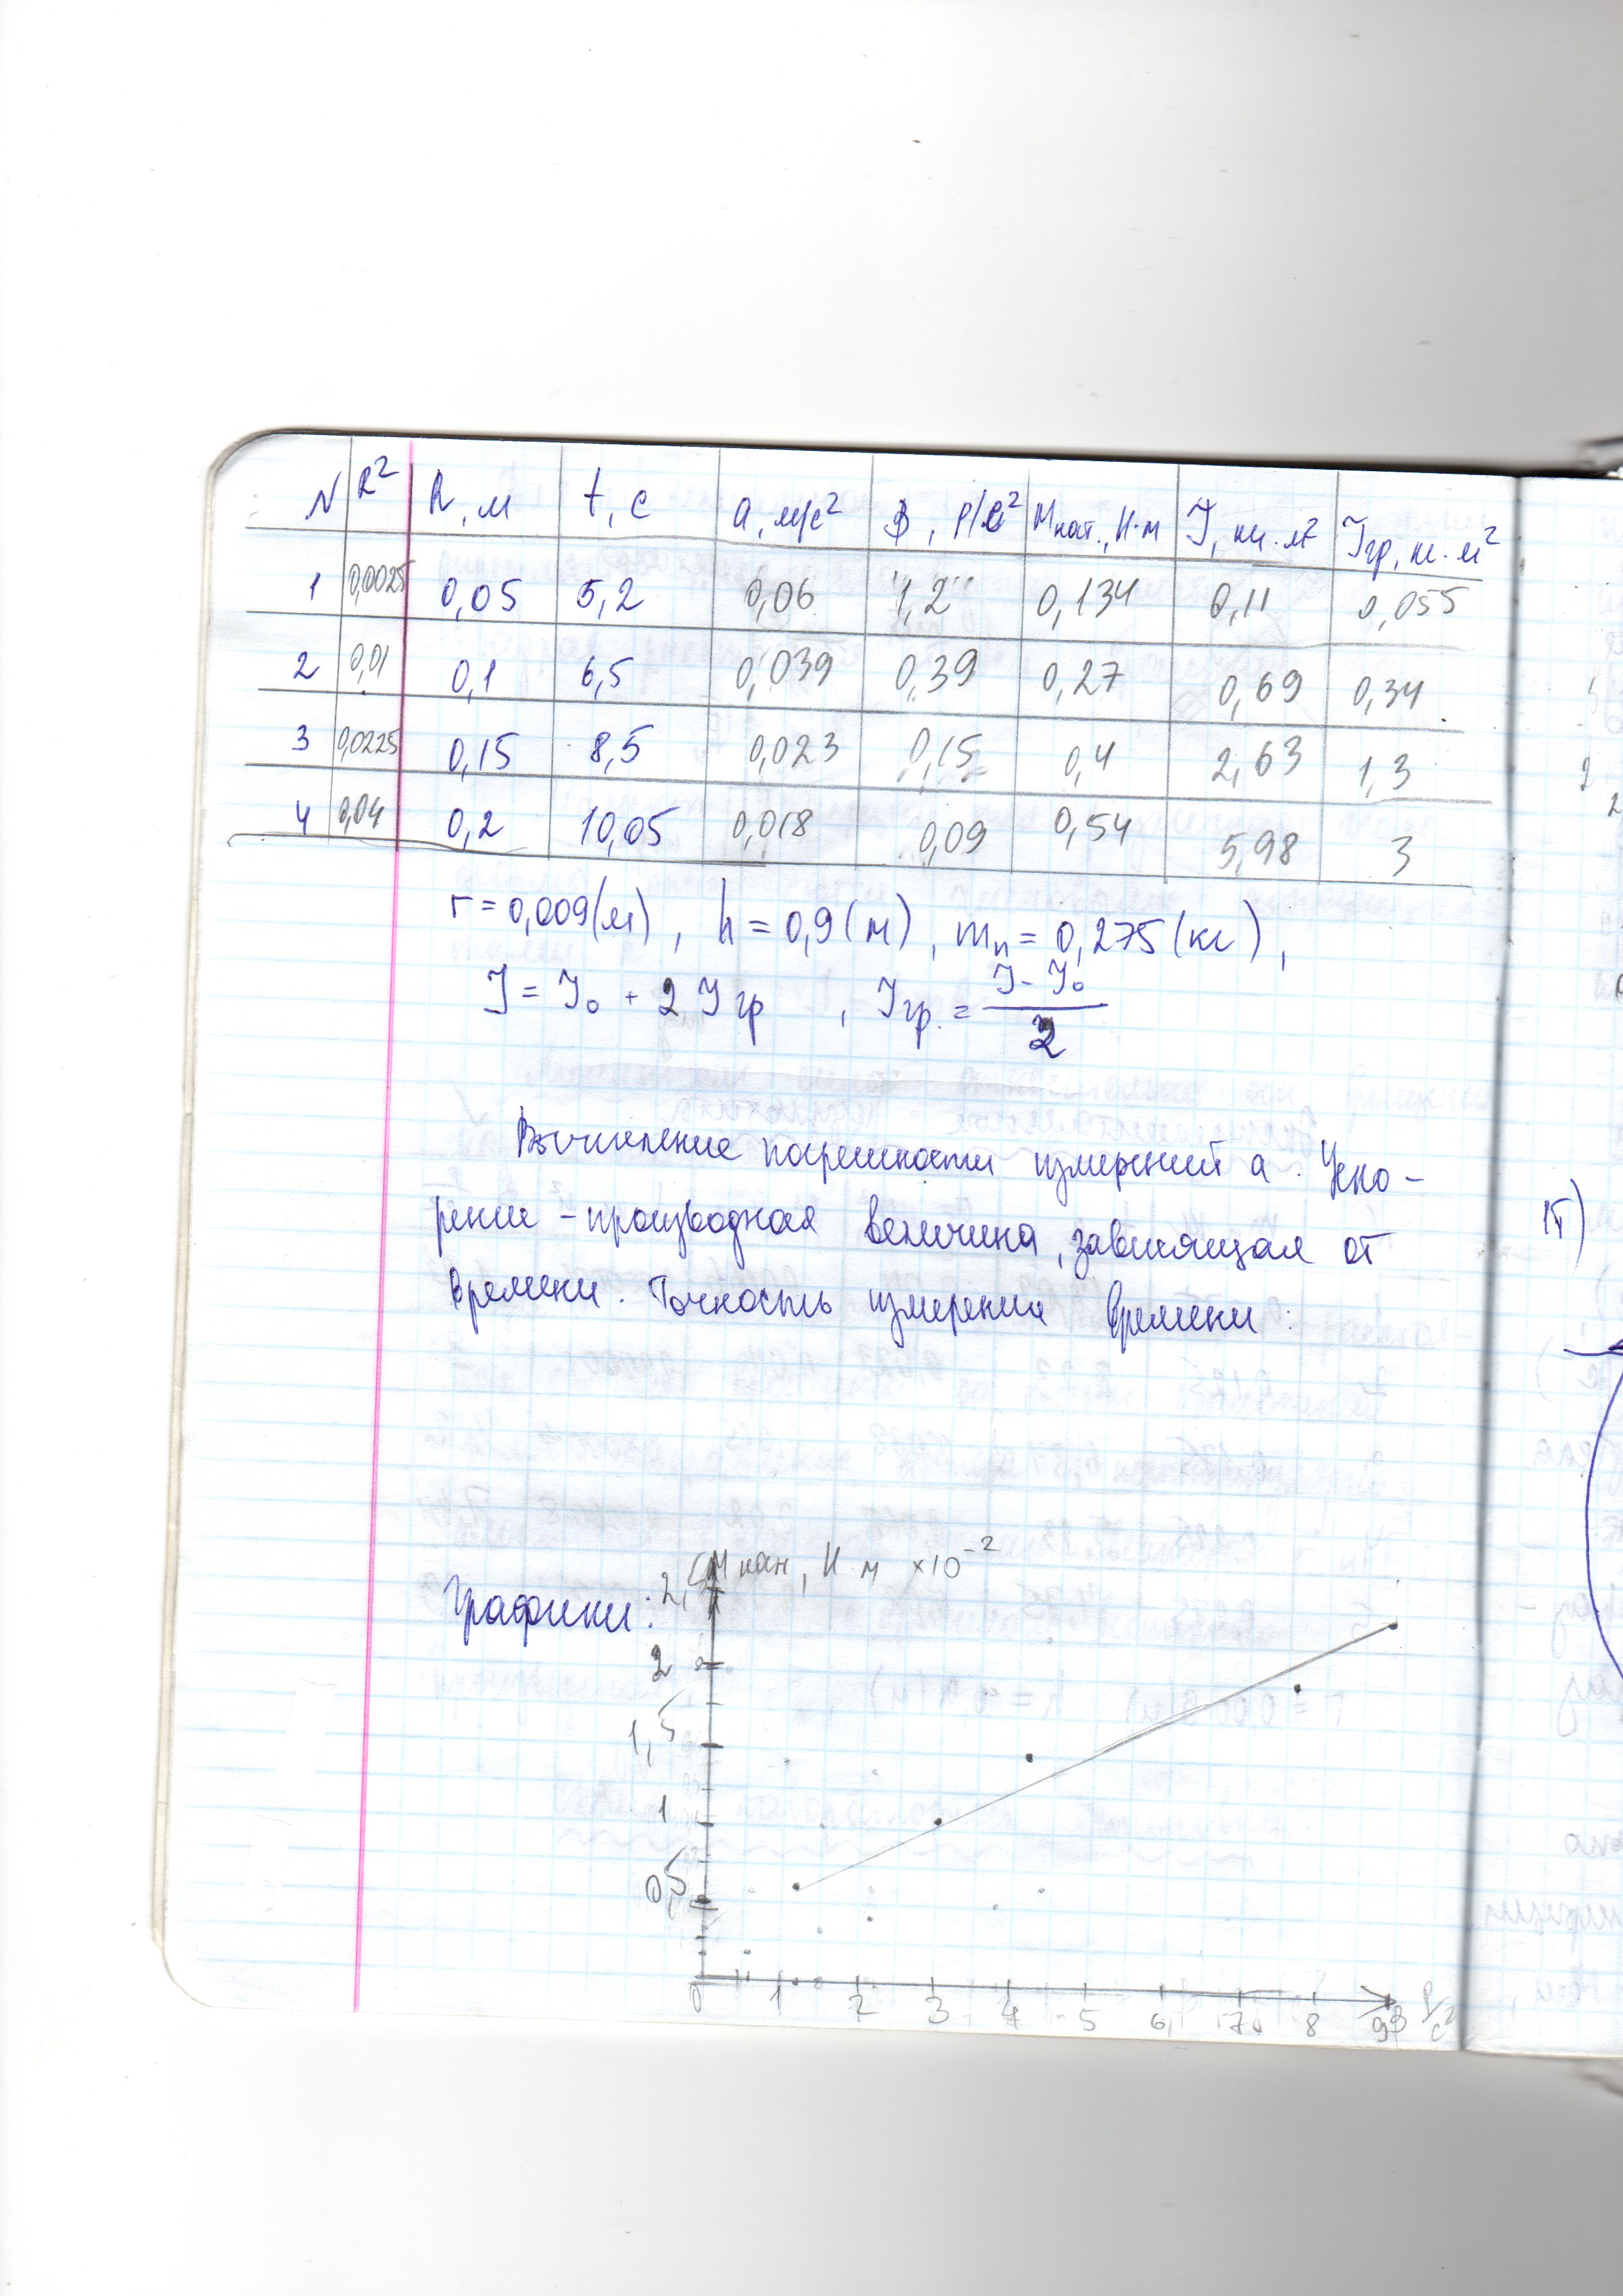 N R² R, м t, с a, м/с² β, р/с² Mнат., Н·м J, кг·м² Jгр, кг·м²
1 0,0025 0,05 5,2 0,06 1,2 0,134 0,11 0,055
2 0,01 0,1 6,5 0,039 0,39 0,27 0,69 0,34
3 0,0225 0,15 8,5 0,023 0,15 0,4 2,63 1,3
4 0,04 0,2 10,05 0,018 0,09 0,54 5,98 3
r = 0,009(м), h = 0,9(м), mп = 0,275(кг),
J = J₀ + 2 Jгр , Jгр. = (J - J₀)/2
Вычисление погрешности измерений a. Уско-
рение - производная величина, зависящая от
времени. Точность измерения времени:
Графики:
Mнат, Н·м ×10⁻²
2,5
2
1,5
1
0,5
0 1 2 3 4 5 6 7 8 9 β р/с²